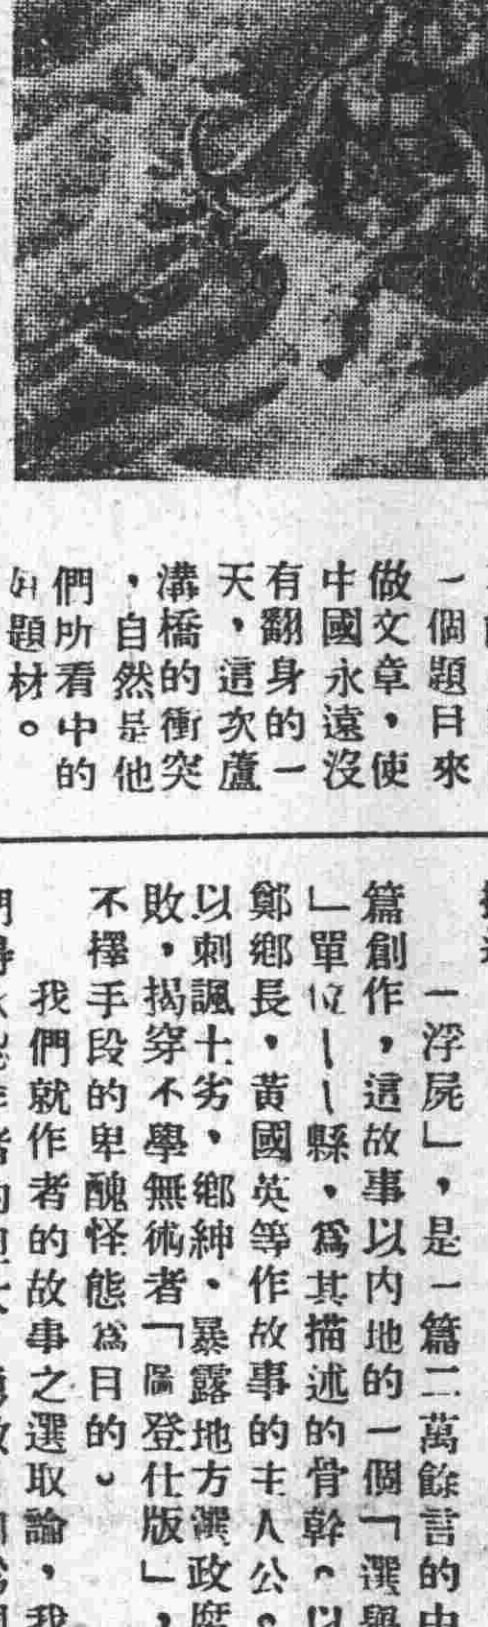 一個題目來
做文章，使
中國永遠沒
有翻身的一
天，這次蘆
溝橋的衝突
，自然是他
們所看中的
好題材。
「浮屍」，是一篇二萬餘言的中
篇創作，這故事以內地的一個「選舉
」單位——縣，為其描述的骨幹。以
鄭鄉長，黃國英等作故事的主人公。
以刺諷土劣，鄉紳、暴露地方濱政腐
敗，揭穿不學無術者「圖登仕版」，
不擇手段的卑醜怪態為目的。
我們就作者的故事之選取論，我